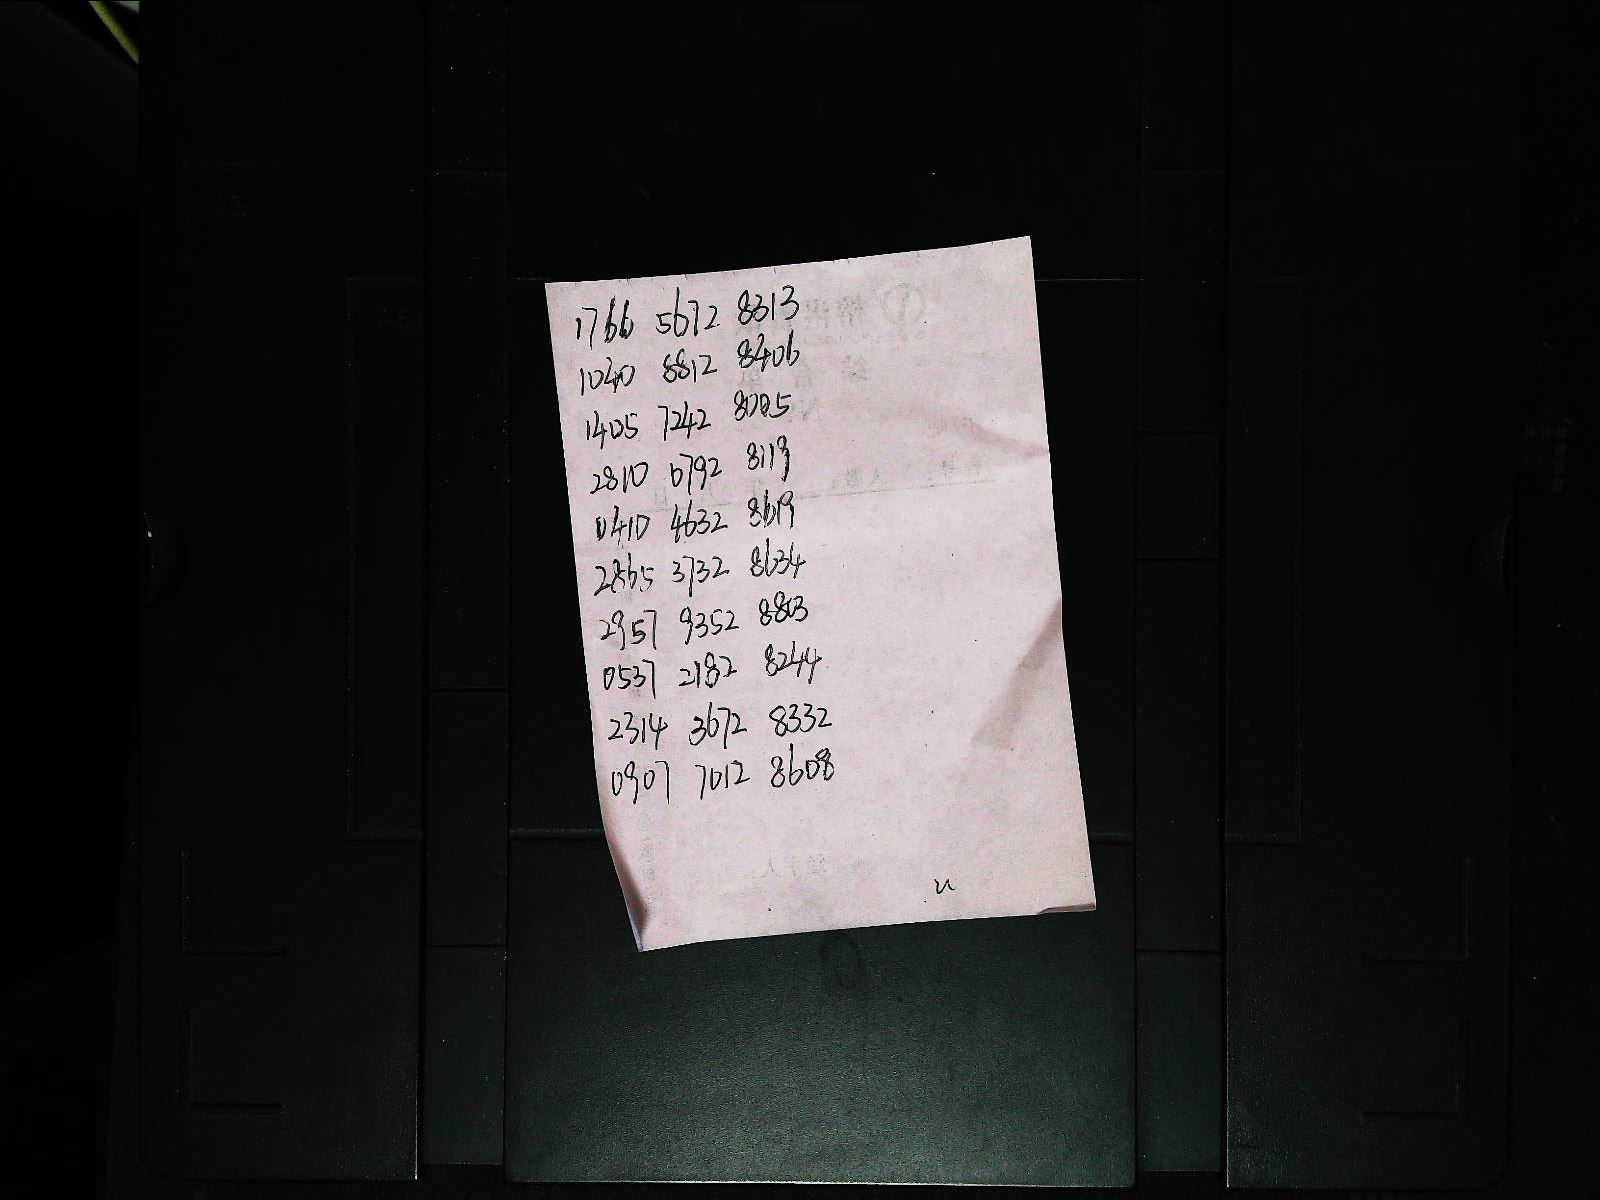 1766 5672 8313
1040 8812 8406
1405 7242 8705
2810 6792 8119
0410 4632 8619
2865 3732 8634
2957 9352 8803
0537 2182 8244
2314 3672 8332
0907 7012 8608